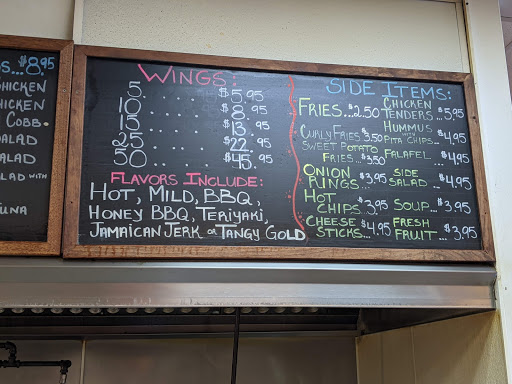 S...$8.95
CHICKEN
CHICKEN
COBB.
SALAD
ALAD
ALAD WITH
TUNA
WINGS:
5........$5.95
10.......$8.95
15.......$13.95
25.......$22.95
50.......$45.95
FLAVORS INCLUDE:
HOT, MILD, BBQ,
HONEY BBQ, TERIYAKI,
JAMAICAN JERK or TANGY GOLD
SIDE ITEMS:
FRIES...$2.50
CURLY FRIES $3.50
SWEET POTATO
FRIES...$3.50
ONION
RINGS..$3.95
HOT
CHIPS.$3.95
CHEESE
STICKS...$4.95
CHICKEN
TENDERS...$5.95
HUMMUS
WITH
PITA CHIPS..$4.95
FALAFEL..$4.95
SIDE
SALAD...$4.95
SOUP...$3.95
FRESH
FRUIT...$3.95